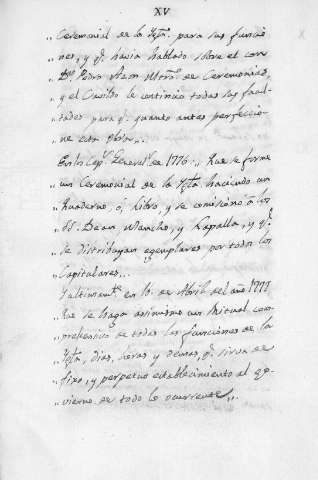 XV
„ Ceremonial de la Ygta. para sus funcio
„ nes, y qe. havia hablado sobre el con
„ Dn. Pedro Mtro. de Ceremonias,
„ y el Cavildo le continúo todas las facul
„ tades para qe. quanto antes perfeccio
„ ne esta obra„.
En los Cap.s General.s de 1776 „ Que se forme
„ un Ceremonial de la Ygta. haciendo un
„ Quaderno, ó Libro, y se comisionó a los
„ SS. Dean Mancho, y Lapalla, y qe.
„ se distribuyan egemplares por todos los
„ Capitulares„.
Y ultimamte. en 16 de Abril del año 1777
„ Que se haga asimismo un Ritual com
„ prehensivo de todas las funciones de la
„ Ygta., dias, horas y demas, qe. sirva de
„ fixo, y perpetuo establecimiento al go-
„ vierno de todo lo ocurrente„.